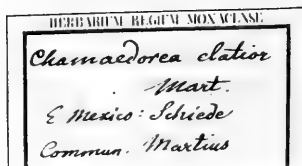 HERBARIUM REGIUM MONACENSE
Chamaedorea elatior
Mart.
E Mexico: Schiede
Commun. Martius